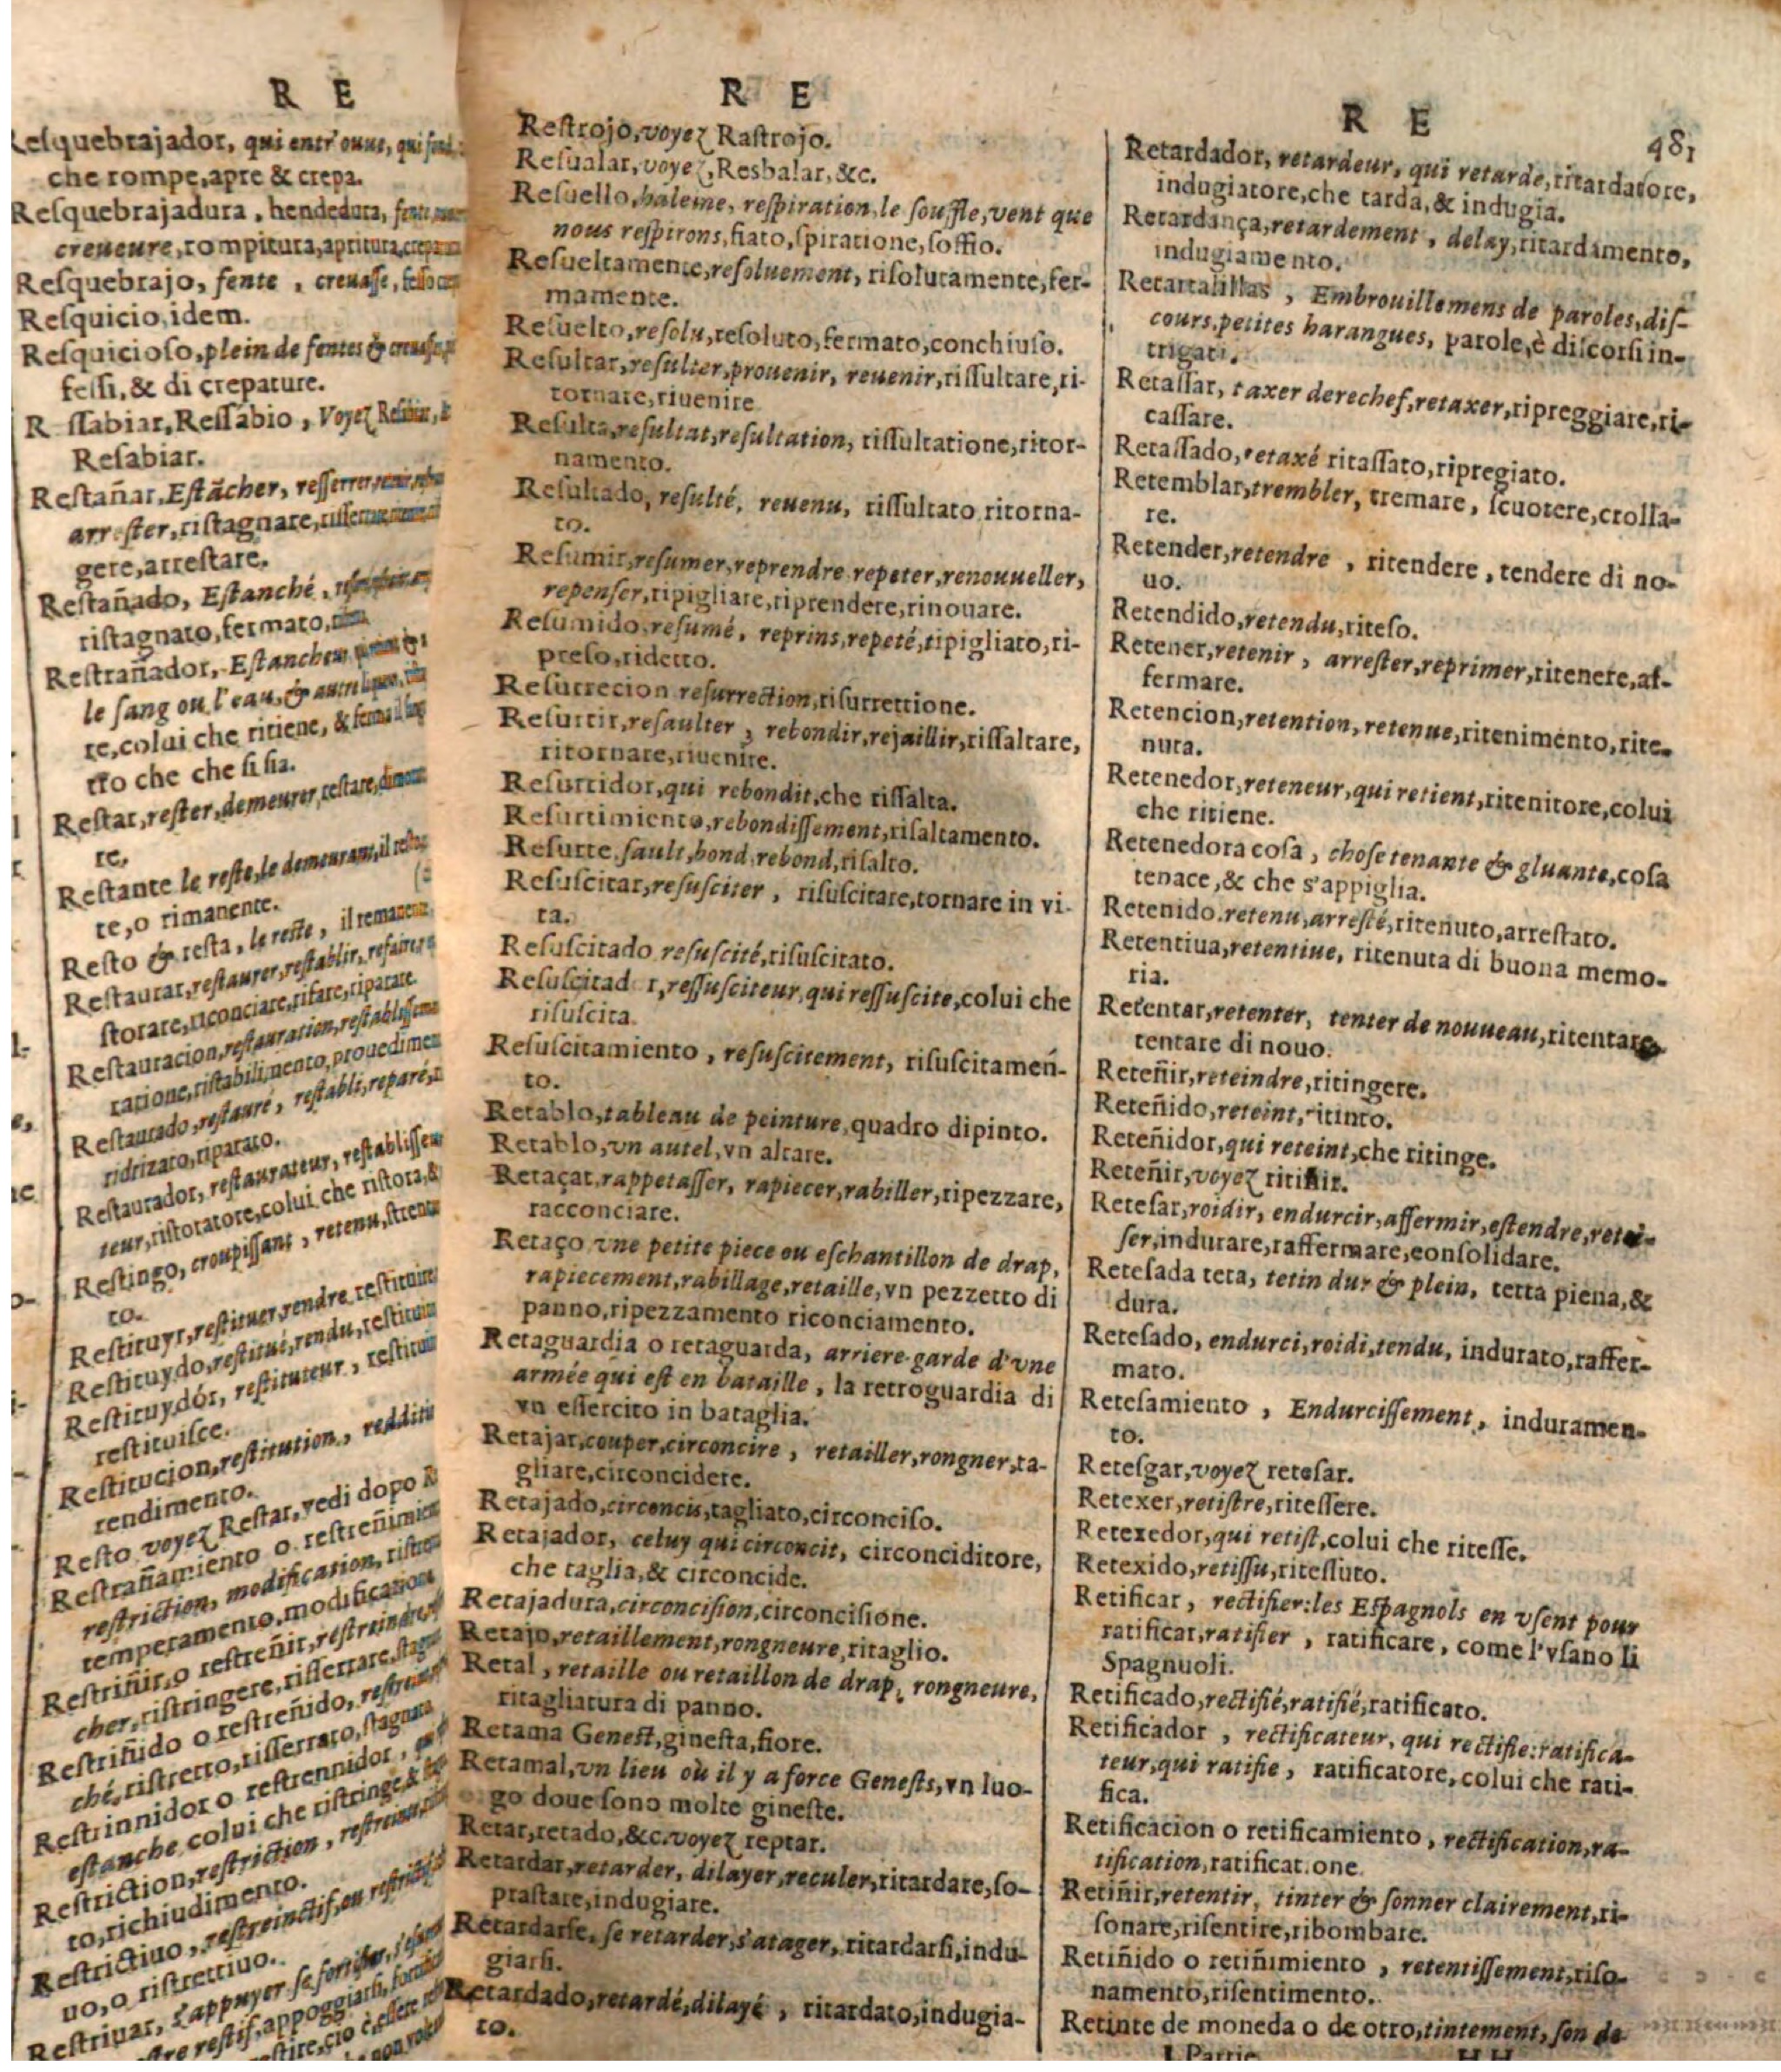 R E
Resquebrajador, qui entr'ouure, qui fend,
che rompe,apre & crepa.
Resquebrajadura, hendedura, fente,
creueure,rompitura,apritura,
Resquebrajo, fente , creuasse, fesso
Resquicio,idem.
Resquicioso,plein de fentes & creuasses,
fessi,& di crepature.
R ssabiar,Ressabio, Voyez Resabiar, &
Resabiar.
Restañar,Estācher, resserrer,
arrester,ristagnare,
gere,arrestare.
Restañado, Estanché,
ristagnato,fermato,
Restrañador, Estancheur
le sang ou l'eau,& autre liqueur,
re,colui che ritiene, & ferma il
tro che che si sia.
Restar,rester,demeurer,restare,
re.
Restante le reste,le demeurant,il
te,o rimanente.
Resto & resta, le reste, il
Restaurar,restaurer,restablir,refaire,
storare,riconciare,rifare,riparare.
Restauracion,restauration,
ratione,ristabilimento,prouedimen
Restaurado,restauré, restabli,reparé,
ridrizato,riparato.
Restaurador, restaurateur,
teur,ristoratore,colui che ristora,&
Restingo, croupissant, retenu,
to.
Restituyr,restituer,rendre,
Restituydo,restitué,rendu,
Restituydór, restituteur,
restituisce.
Restitucion,restitution,
rendimento.
Resto voyez Restar,vedi dopo
Restrañamiento o restreñimien
restriction, modification,
temperamento,modificatione
Restriñir,o restreñir,restreindre,
cher,ristringere,risserrare,
Restriñido o restreñido,
ché,ristretto,risserrato,stagnato
Restrinnidor o restrennidor,
estanche colui che ristringe,&
Restriction,restriction,
to,richiudimento.
Restrictiuo, restreinctif,ou restrictif
uo,o ristrettiuo.
Restriuar, s'appuyer se fortifier,
restif,appoggiarsi,
R E
Restrojo,voyez Rastrojo.
Resualar,voyez,Resbalar,&c.
Resuello,haleine, respiration,le souffle,vent que
nous respirons,fiato,spiratione,soffio.
Resueltamente,resoluement, risolutamente,fer-
mamente.
Resuelto,resolu,resoluto,fermato,conchiuso.
Resultar,resulter,prouenir, reuenir,rissultare,ri-
tornare,riuenire
Resulta,resultat,resultation, rissultatione,ritor-
namento.
Resultado, resulté, reuenu, rissultato ritorna-
to.
Resumir,resumer,reprendre repeter,renouueller,
repenser,ripigliare,riprendere,rinouare.
Resumido,resumé, reprins,repeté,ripigliato,ri-
preso,ridetto.
Resurrecion resurrection,risurrettione.
Resurtir,resaulter , rebondir,rejaillir,rissaltare,
ritornare,riuenire.
Resurtidor,qui rebondit,che rissalta.
Resurtimiento,rebondissement,risaltamento.
Resurte sault,bond,rebond,risalto.
Resuscitar,resusciter , risuscitare,tornare in vi-
ta.
Resuscitado resuscité,risuscitato.
Resuscitad r,ressusciteur,qui ressuscite,colui che
risuscita.
Resuscitamiento , resuscitement, risuscitamen-
to.
Retablo,tableau de peinture,quadro dipinto.
Retablo,vn autel,vn altare.
Retaçar,rappetasser, rapiecer,rabiller,ripezzare,
racconciare.
Retaço vne petite piece ou eschantillon de drap,
rapiecement,rabillage,retaille,vn pezzetto di
panno,ripezzamento riconciamento.
Retaguardia o retaguarda, arriere-garde d'vne
armée qui est en bataille, la retroguardia di
vn essercito in bataglia.
Retajar,couper,circoncire , retailler,rongner,ta-
gliare,circoncidere.
Retajado,circoncis,tagliato,circonciso.
Retajador, celuy qui circoncit, circonciditore,
che taglia,& circoncide.
Retajadura,circoncision,circoncisione.
Retajo,retaillement,rongneure,ritaglio.
Retal, retaille ou retaillon de drap, rongneure,
ritagliatura di panno.
Retama Genest,ginesta,fiore.
Retamal,vn lieu où il y a force Genests,vn luo-
go doue sono molte gineste.
Retar,retado,&c.voyez reptar.
Retardar,retarder, dilayer,reculer,ritardare,so-
prastare,indugiare.
Retardarse, se retarder,s'atager, ritardarsi,indu-
giarsi.
Retardado,retardé,dilayé , ritardato,indugia-
to.
R E 481
Retardador, retardeur, qui retarde,ritardatore,
indugiatore,che tarda,& indugia.
Retardança,retardement , delay,ritardamento,
indugiamento.
Retartalillas , Embrouillemens de paroles,dis-
cours,petites harangues, parole,è discorsi in-
trigati.
Retassar, taxer derechef,retaxer,ripreggiare,ri-
tassare.
Retassado,retaxé ritassato,ripregiato.
Retemblar,trembler, tremare, scuotere,crolla-
re.
Retender,retendre , ritendere , tendere di no-
uo.
Retendido,retendu,riteso.
Retener,retenir , arrester,reprimer,ritenere,af-
fermare.
Retencion,retention, retenue,ritenimento,rite-
nuta.
Retenedor,reteneur,qui retient,ritenitore,colui
che ritiene.
Retenedora cosa , chose tenante & gluante,cosa
tenace,& che s'appiglia.
Retenido.retenu,arresté,ritenuto,arrestato.
Retentiua,retentiue, ritenuta di buona memo-
ria.
Retentar,retenter, tenter de nouueau,ritentare
tentare di nouo.
Reteñir,reteindre,ritingere.
Reteñido,reteint,ritinto.
Reteñidor,qui reteint,che ritinge.
Reteñir,voyez ritiñir.
Retesar,roidir, endurcir,affermir,estendre,retei-
ser,indurare,raffermare,consolidare.
Retesada teta, tetin dur & plein, tetta piena,&
dura.
Retesado, endurci,roidi,tendu, indurato,raffer-
mato.
Retesamiento , Endurcissement, induramen-
to.
Retesgar,voyez retesar.
Retexer,retistre,ritessere.
Retexedor,qui retist,colui che ritesse.
Retexido,retissu,ritessuto.
Retificar, rectifier:les Espagnols en vsent pour
ratificar,ratifier , ratificare, come l'vsano li
Spagnuoli.
Retificado,rectifié,ratifié,ratificato.
Retificador , rectificateur, qui rectifie:ratifica-
teur,qui ratifie, ratificatore, colui che rati-
fica.
Retificacion o retificamiento , rectification,ra-
tification,ratificat.one
Retiñir,retentir, tinter & sonner clairement,ri-
sonare,risentire,ribombare.
Retiñido o retiñimiento , retentissement,riso-
namento,risentimento.
Retinte de moneda o de otro,tintement, son de
I. Partie. H H